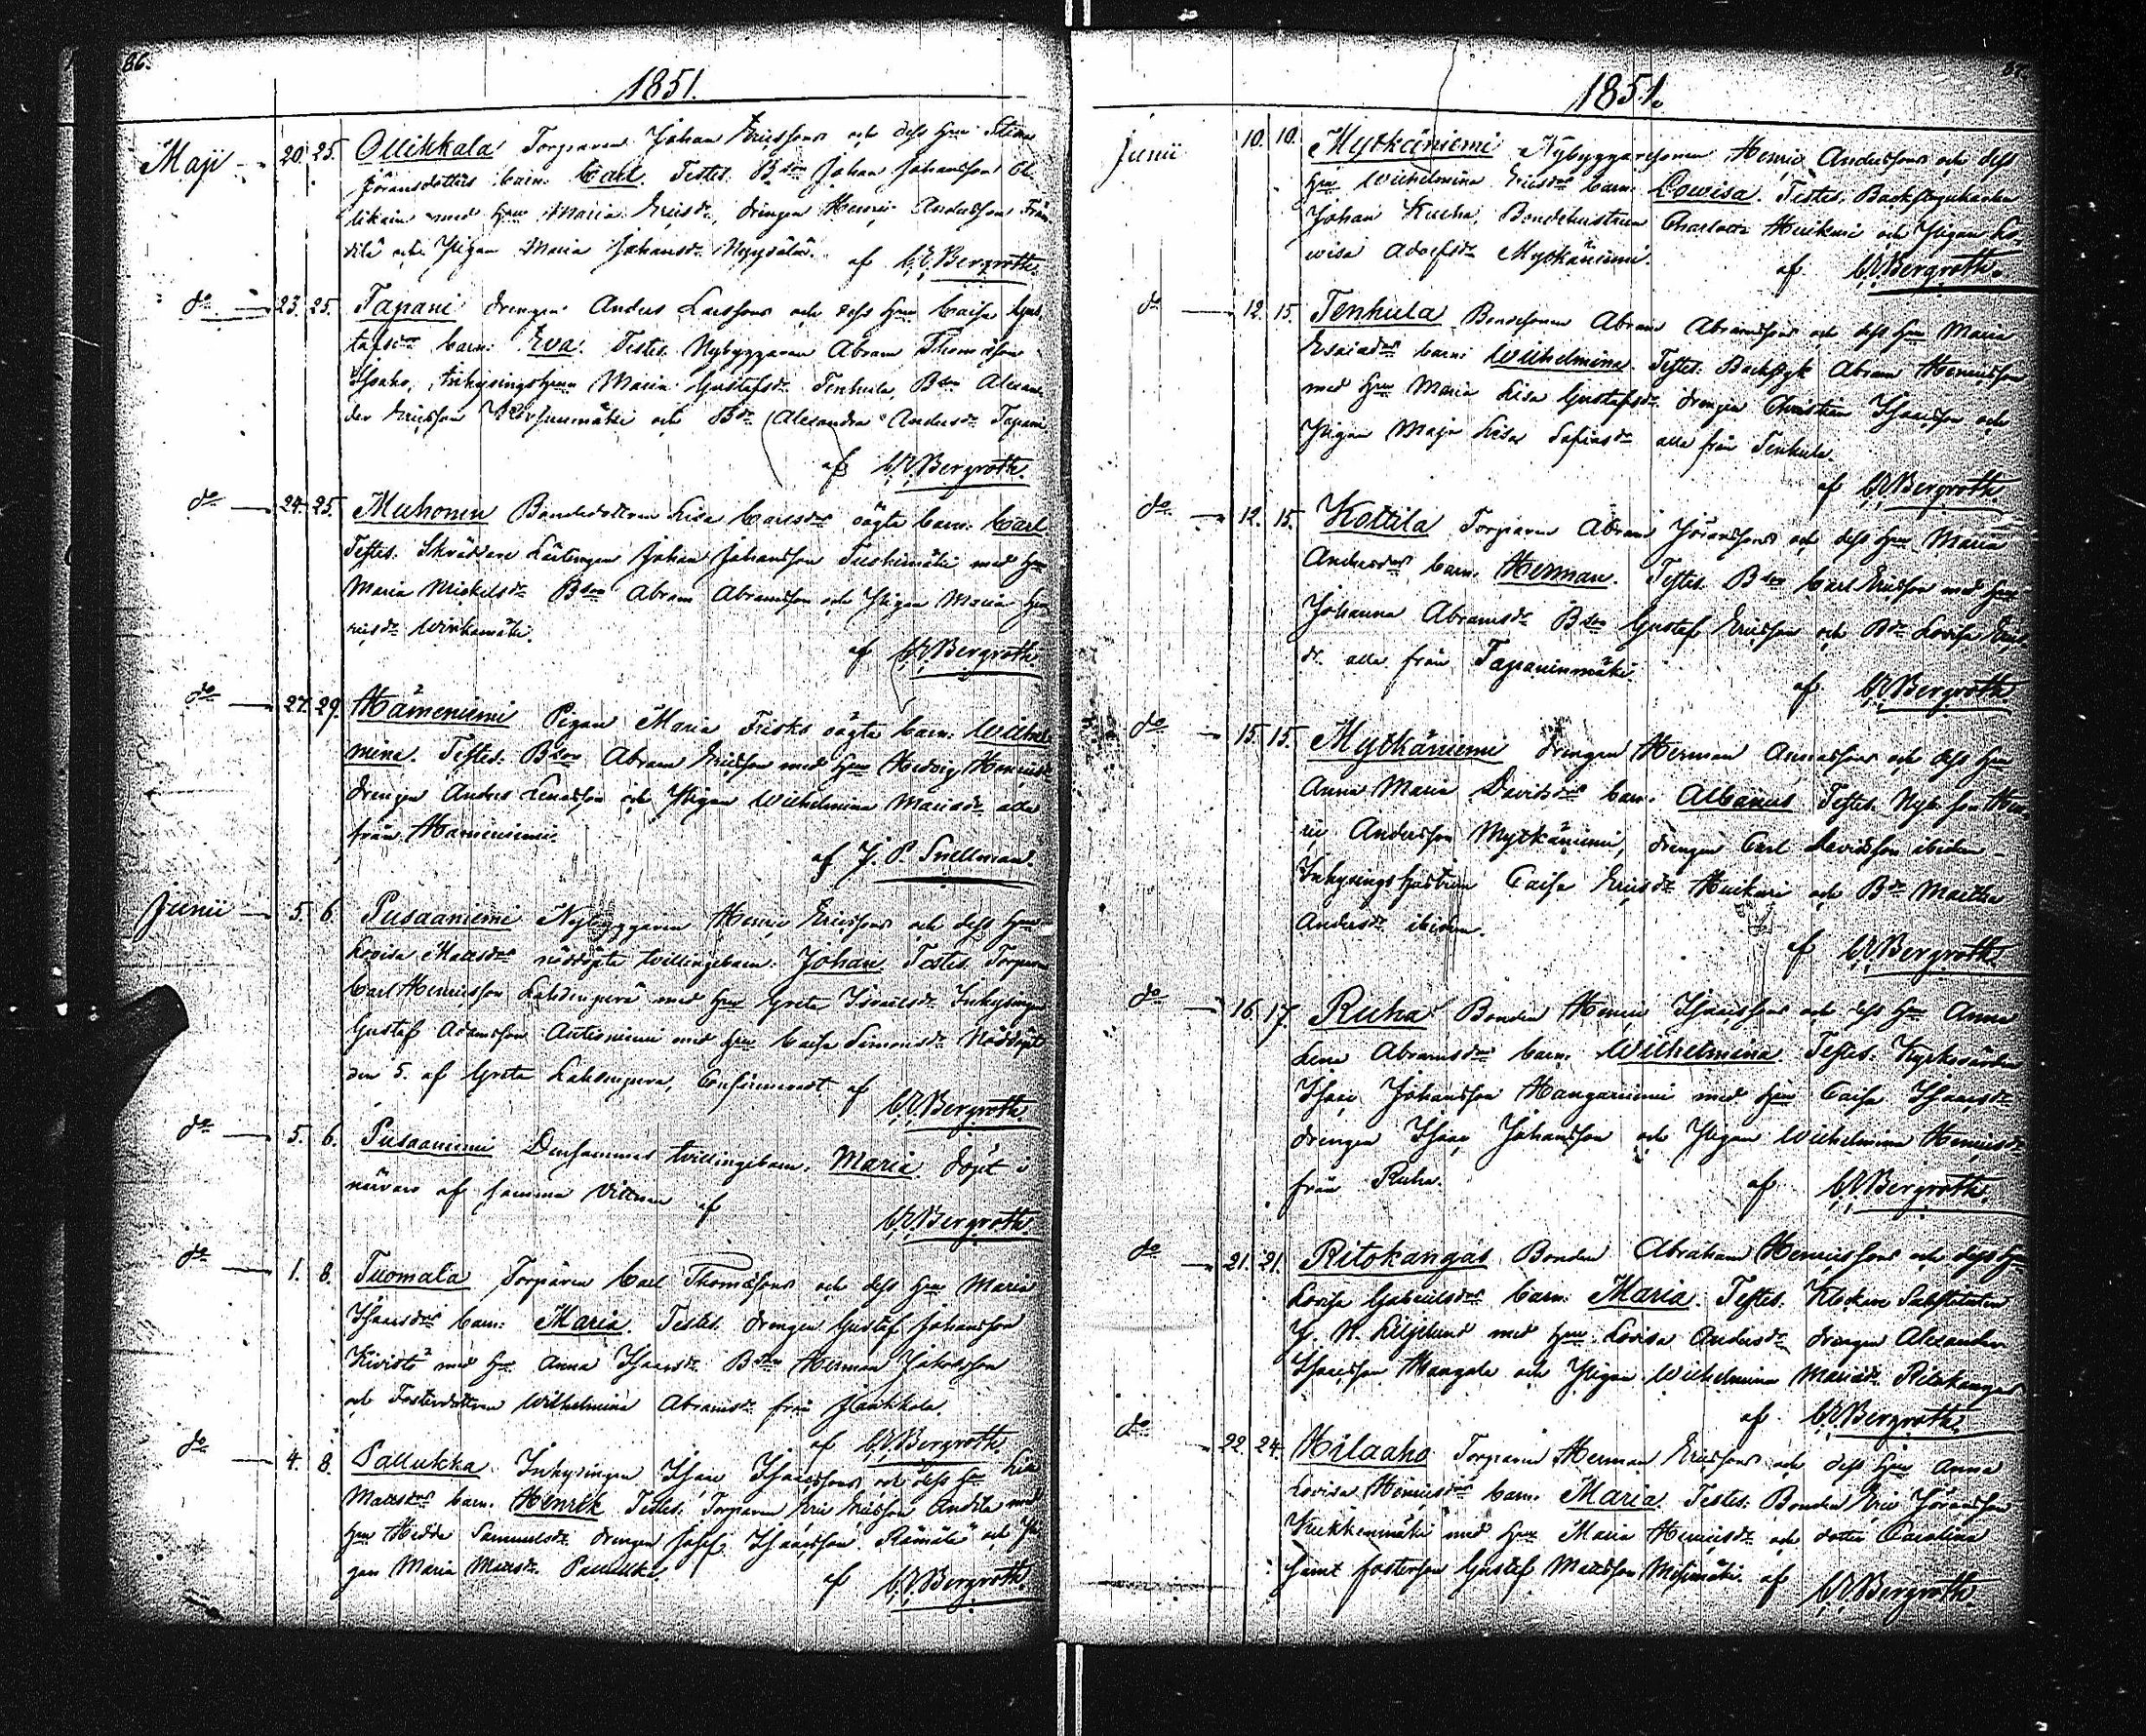 86.
1851.
Maji 20. 25. Ollikkala Torparen Johan Ericssons och dess Hru Stina
Jöransdotters barn. Carl. Testes. Bdn Johan Johansson Ol-
likain med Hru Maria Ericsdr, drengen Henric Andersson
och Pigan Maria Johansdr af C.E. Bergroth.
do 23. 25. Tapani drengen Anders Larssons och dess Hru Caisa Gus-
tafsdrs barn. Eva. Testes. Nybyggaren Abram Thomasson
Isoaho, Inhysingshrun Maria Gustafsdr Tenhula, Bdn Alexan-
der Ericsson och Bdr Alexandra Andersdr Tapani
af C.E. Bergroth.
do 24. 25. Muhonen Bondedottren Lisa Carlsdrs oägta barn. Carl
Testes. Skräddare Lärlingen Johan Johansson med Hru
Maria Mickelsdr Bdn Abram Abramsson och Pigan Maria Hen-
ricsdr
af C.E. Bergroth.
do 27. 29. Hämeniemi Pigan Maria Frisks oägta barn. Wilhel-
mina. Testes. Bdn Abram Ericsson med Hru Hedvig Henricsdr
drengen Anders och Pigan Wilhelmina Mariasdr alla
från Hämeniemi.
af J. P. Snellman.
Junii 5. 6. Pusaaniemi Nybyggaren Henric Ericssons och dess Hru
Lovisa Matsdrs nöddöpta tvillingebarn. Johan. Testes. Torparen
Carl Henricsson Lahdenperä med Hru Greta Israelsdr Inhysingen
Gustaf Adamsson med Hru Caisa Simonsdr Nöddöpt
den 5. af Greta Lahdenperä, Confirmerat af
C.E. Bergroth.
do 5. 6. Pusaaniemi Densammes tvillingebarn. Maria döpt i
närvaro af samma vittnen af
C.E. Bergroth.
do 1. 8. Tuomala Torparen Carl Thomassons och dess Hru Maria
Isaacsdrs barn. Maria. Testes. drengen Gustaf Johansson
Kivistö med Hru Anna Isaacsdr Bdn Herman Jakobsson
och Fosterdottren Wilhelmina Abramsdr från Jankkala.
af C.E. Bergroth.
do 4. 8. Pallukka Inhysingen Isaac Isaacssons och dess Hru Lisa
Matsdrs barn. Henrik Testes. Torparen Eric Ericsson med
Hru Hedda Samuelsdr drengen Josef Isaacsson Rämälä och Pi-
gan Maria Matsdr Pallukka.
af C.E. Bergroth.
87.
1851.
Junii 10. 10. Mytkäniemi Nybyggaresonen Henric Anderssons och dess
Hru Wilhelmina Ericsdrs barn. Lowisa. Testes.
Johan Ruha, Bondehustrun Charlotta Huikari och Pigan Lo-
wisa Adolfsdr Mytkäniemi.
af C.E. Bergroth.
do 12. 15. Tenhula Bondesonen Abram Abramssons och dess Hru Maria
Esaiadrs barn: Wilhelmina. Testes. Abram Henricsson
med Hru Maria Lisa Gustafsdr drengen Christian Isaacsson och
Pigan Maja Lisa alla från Tenhula.
af C.E. Bergroth
do 12. 15. Kottila Torparen Abram Jöranssons och dess Hru Maria
Andersdrs barn. Herman. Testes. Bdn Carl Ericsson med Hru
Johanna Abramsdr Bdn Gustaf Ericsson och Bdr Lovisa Erics-
dr alla från Tapaninmäki.
af C.E. Bergroth
do 15. 15. Mytkäniemi drengen Herman och dess Hru
Anna Maria Davidsdrs barn. Albanus Testes. Nyb. son Hen-
ric Andersson Mytkäniemi, drengen Carl Davidsson ibidem
Inhysingshustrun Caisa Ericsdr Huikari och Bdr Martha
Andersdr ibidem.
af C.E. Bergroth
do 16. 17. Ruha Bonden Henric Isaacssons och dess Hru Anna
Lena Abramsdrs barn. Wilhelmina Testes. Kyrkovärden
Isaac Johansson Manganiemi med Hru Caisa Isaacsdr
drengen Isaac Johansson och Pigan Wilhelmina Henricsdr
från Ruha.
af C.E. Bergroth.
do 21. 21. Ritokangas Bonden Abraham Henricssons och dess Hru
Lovisa Gabrielsdrs barn. Maria. Testes. Klockare Substituten
J. H. Liljelund med Hru Lovisa Andersdr drengen Alexander
Isaacsson och Pigan Wilhelmina Mariasdr Ritokangas
af C.E. Bergroth.
do 22. 24. Hilaaho Torparen Herman Ericssons och dess Hru Anna
Lovisa Henricsdrs barn. Maria. Testes. Bonden Eric Jöransson
Kukkenmäki med Hru Maria Henricsdr och dotter Carolina
samt fosterson Gustaf Mattsson af C.E. Bergroth.